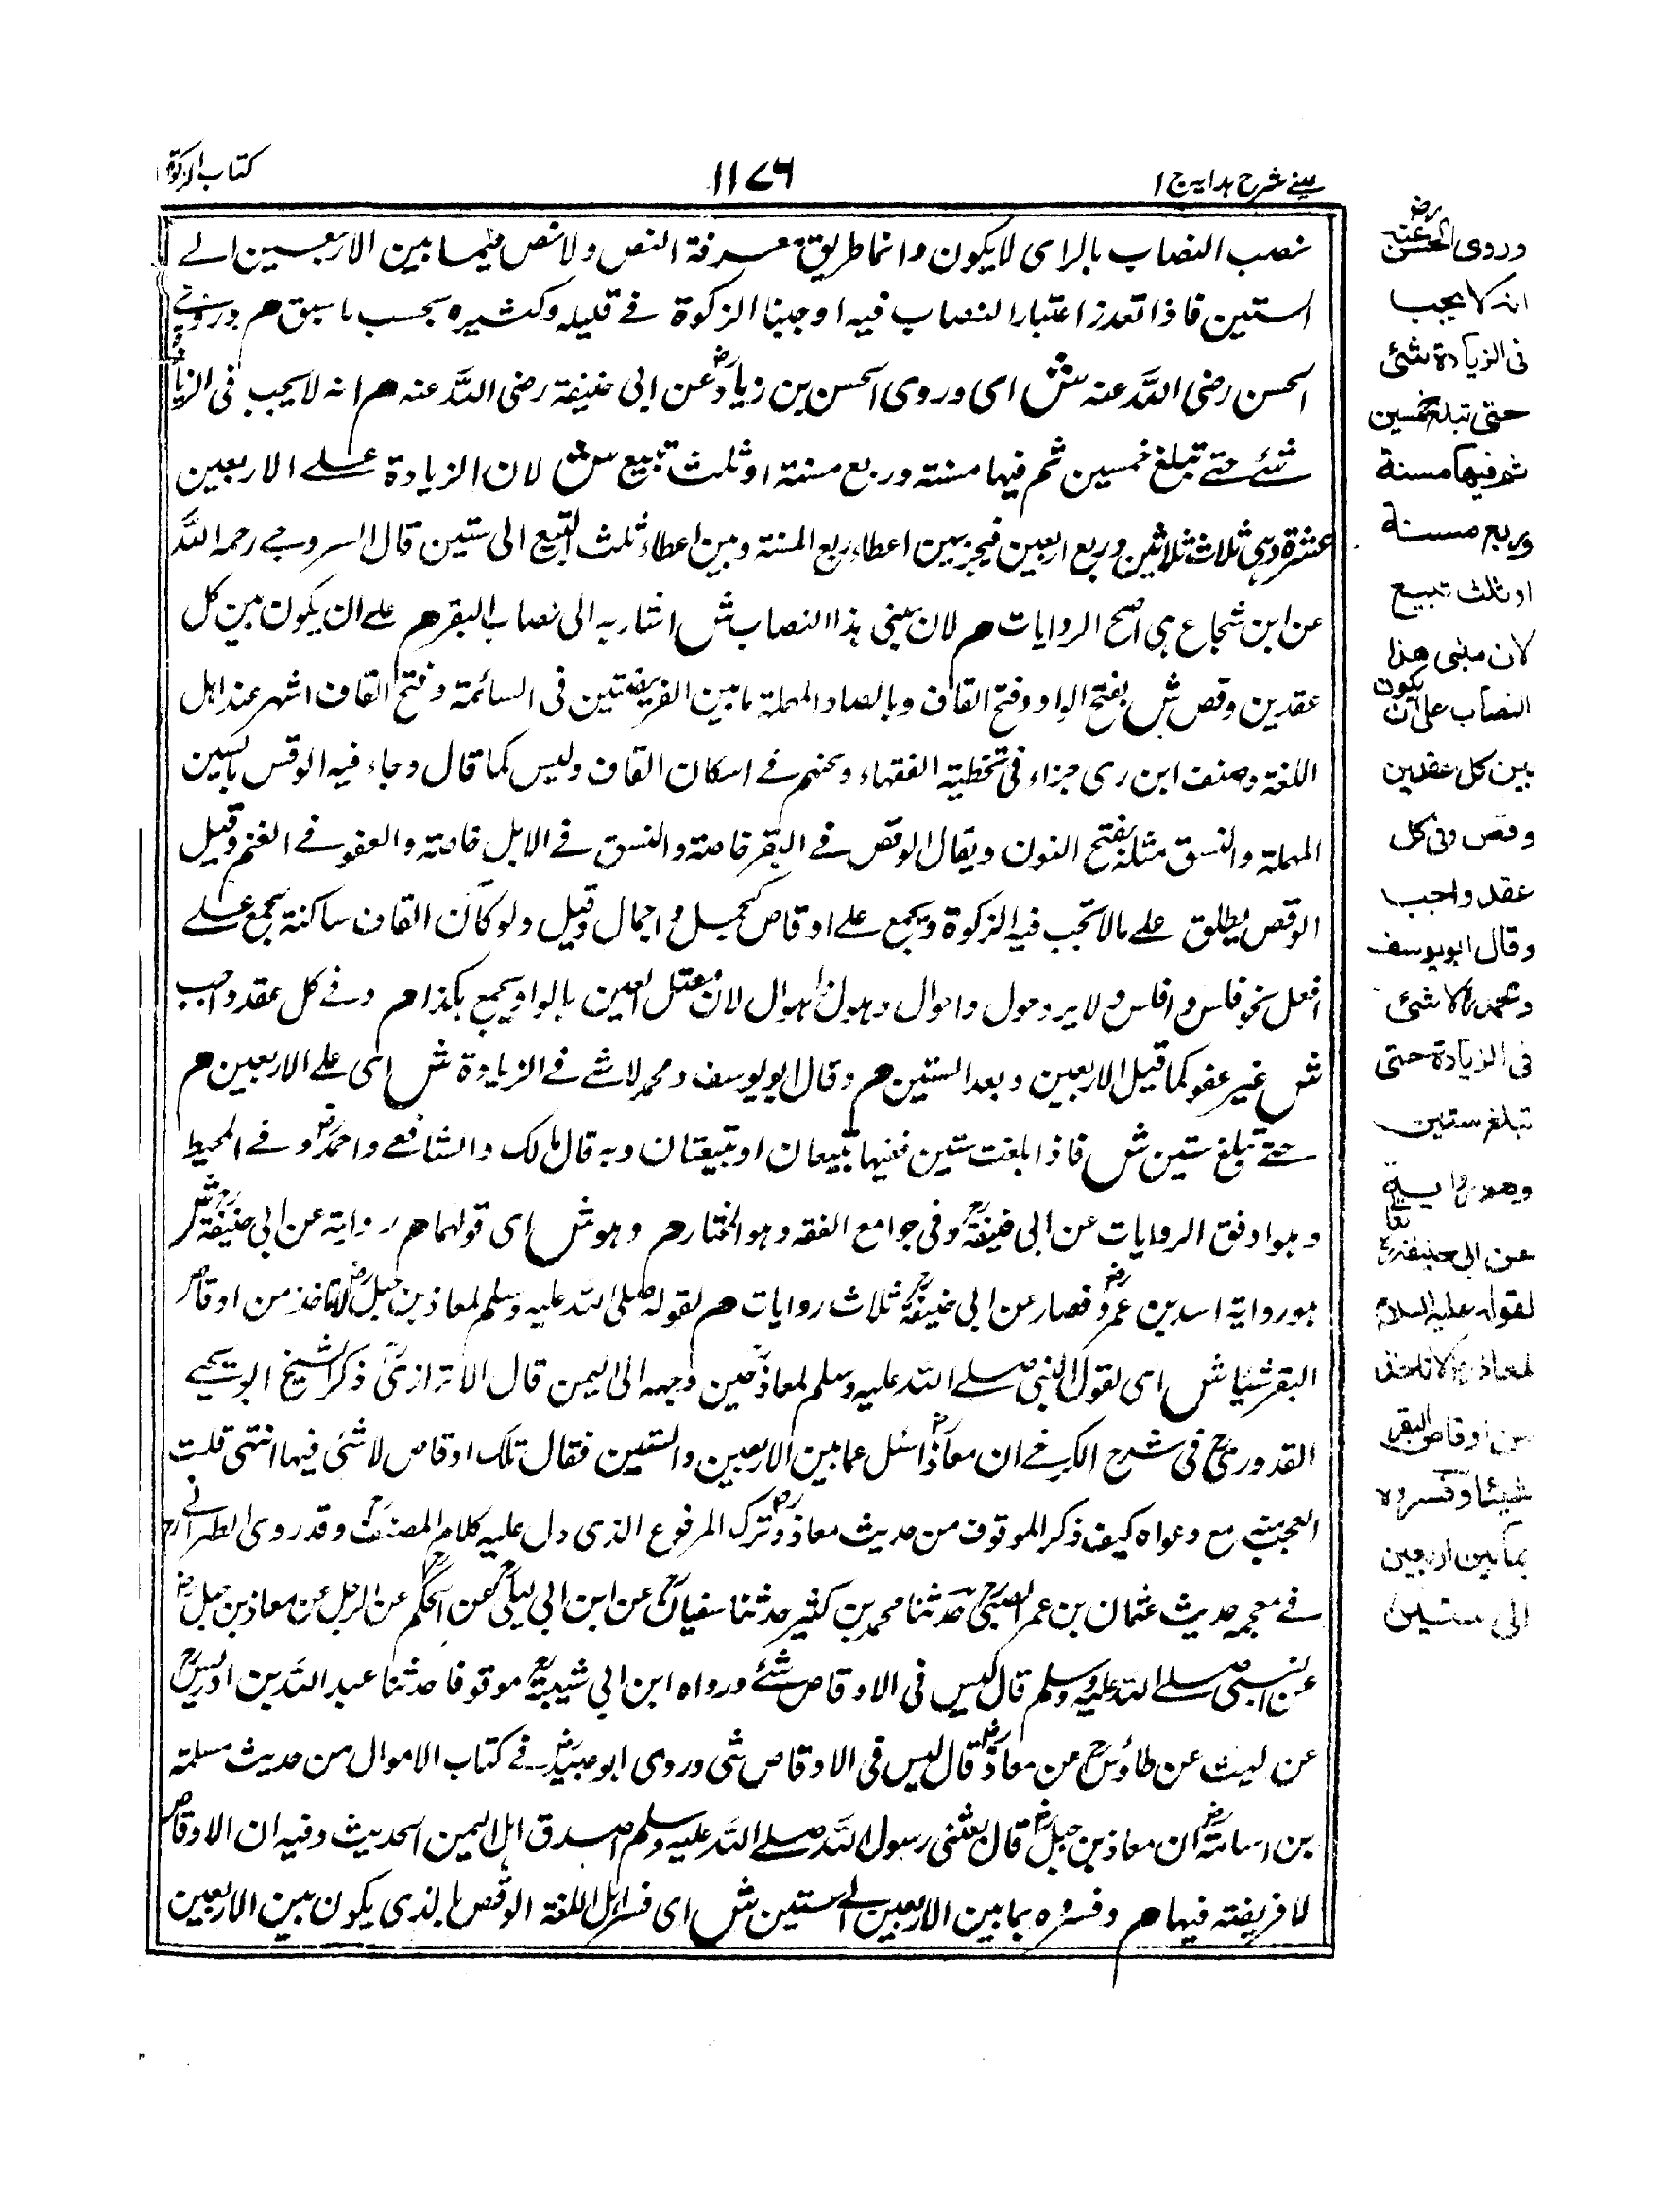 عینے شرح ہدایہ ج ۱
۱۱۷۶
کتاب الزکوة
نصب النصاب بالرای لایکون وانما طریقہ معرفة النص ولا نص فیما بین الاربعین الے
الستین فاذا تعذر اعتبار النصاب فیہ اوجبنا الزکوة فے قلیلہ وکثیرہ بحسب ماسبق م وروے
الحسن رضی اللہ عنہ ش ای وروی الحسن بن زیادؒ عن ابی حنیفة رضی اللہ عنہ م انہ لایجب فی الزیادة
شئے حتے تبلغ خمسین ثم فیہا مسنة وربع مسنة او ثلث تبیع ش لان الزیادة علے الاربعین
عشرة وہی ثلاث ثلاثین وربع اربعین فیخیر بین اعطاء ربع المسنة وبین اعطاء ثلث التبیع الی ستین قال السروجے رحمہ اللہ
عن ابن شجاع ہی اصح الروایات م لان مبنی ہذا النصاب ش اشار بہ الی نصاب البقر م علے ان یکون بین کل
عقدین وقص ش بفتح الواو وفتح القاف وبالصاد المہملة مابین الفریضتین فی السائمة وفتح القاف اشہر عند اہل
اللغة وصنف ابن بری جزاء فی تخطیة الفقہاء ولحنہم فے اسکان القاف ولیس کما قال وجاء فیہ الوقس بالسین
المہملة والنسق مثلہ بفتح النون ویقال الوقص فے البقر خاصة والنسق فے الابل خاصة والعفو فے الغنم وقیل
الوقص یطلق علے مالاتجب فیہ الزکوة ویجمع علے اوقاص کجمل و اجمال وقیل ولو کان القاف ساکنة یجمع علے
افعل نحو فلس و افلس ولا یرد حول واحوال وہول واہوال لان معتل العین بالواو یجمع ہکذا م وفے کل عقد واجب
ش غیر عفو کما قبل الاربعین وبعد الستین م وقال ابویوسف ومحمد لاشے فے الزیادة ش ای علے الاربعین م
حتے تبلغ ستین ش فاذا بلغت ستین ففیہا تبیعان او تبیعتان وبہ قال مالک والشافعے واحمدؒ وفے المحیط
وہو اوفق الروایات عن ابی حنیفةؒ وفی جوامع الفقہ وہو المختار م وہو ش ای قولہما م روایة عن ابی حنیفةؒ ش
ہو روایة اسد بن عمرو فصار عن ابی حنیفةؒ ثلاث روایات م لقولہ صلی اللہ علیہ وسلم لمعاذ بن جبلؓ لاتاخذ من اوقاص
البقر شیئا ش ای لقول النبی صلے اللہ علیہ وسلم لمعاذؓ حین وجہہ الی الیمن قال الاترازیؒ ذکر الشیخ ابو
القدوریؒ فی شرح الکرخے ان معاذاؓ سئل عما بین الاربعین والستین فقال تلک اوقاص لاشئی فیہا انتہی قلت
العجب منہ مع دعواہ کیف ذکر الموقوف من حدیث معاذؓ وترک المرفوع الذی دل علیہ کلام المصنفؒ وقد روی الطبرانےؒ
فے معجمہ حدیث عثمان بن عمر الضبیؒ حدثنا محمد بن کثیر حدثنا سفیانؒ عن ابن ابی لیلیؒ عن الحکمؒ عن الرجل عن معاذ بن جبلؓ
عن النبی صلے اللہ علیہ وسلم قال لیس فی الاوقاص شئے ورواہ ابن ابی شیبةؒ موقوفا حدثنا عبد اللہ بن ادریسؒ
عن لیث عن طاؤسؒ عن معاذؓ قال لیس فی الاوقاص شی وروی ابوعبیدؒ فے کتاب الاموال من حدیث سلمة
بن اسامةؓ ان معاذ بن جبلؓ قال بعثنی رسول اللہ صلے اللہ علیہ وسلم اصدق اہل الیمن الحدیث وفیہ ان الاوقاص
لا فریضة فیہا م وفسروہ بما بین الاربعین الے ستین ش ای فسر اہل اللغة الوقص بالذی یکون بین الاربعین
وروی الحسن عنہ رض
انہ لا یجب
فی الزیادة شئ
حتی تبلغ خمسین
ثم فیہا مسنة
وربع مسنة
او ثلث تبیع
لان مبنی هذا
النصاب علی ان یکون
بین کل عقدین
وقص وفی کل
عقد واجب
وقال ابویوسف
ومحمد لا شئ
فی الزیادة حتی
تبلغ ستین
وهو روایة
عن ابی حنیفة
لقوله علیه السلام
لمعاذ لا تاخذ
من اوقاص البقر
شیئا وفسروه
بما بین اربعین
الی ستین